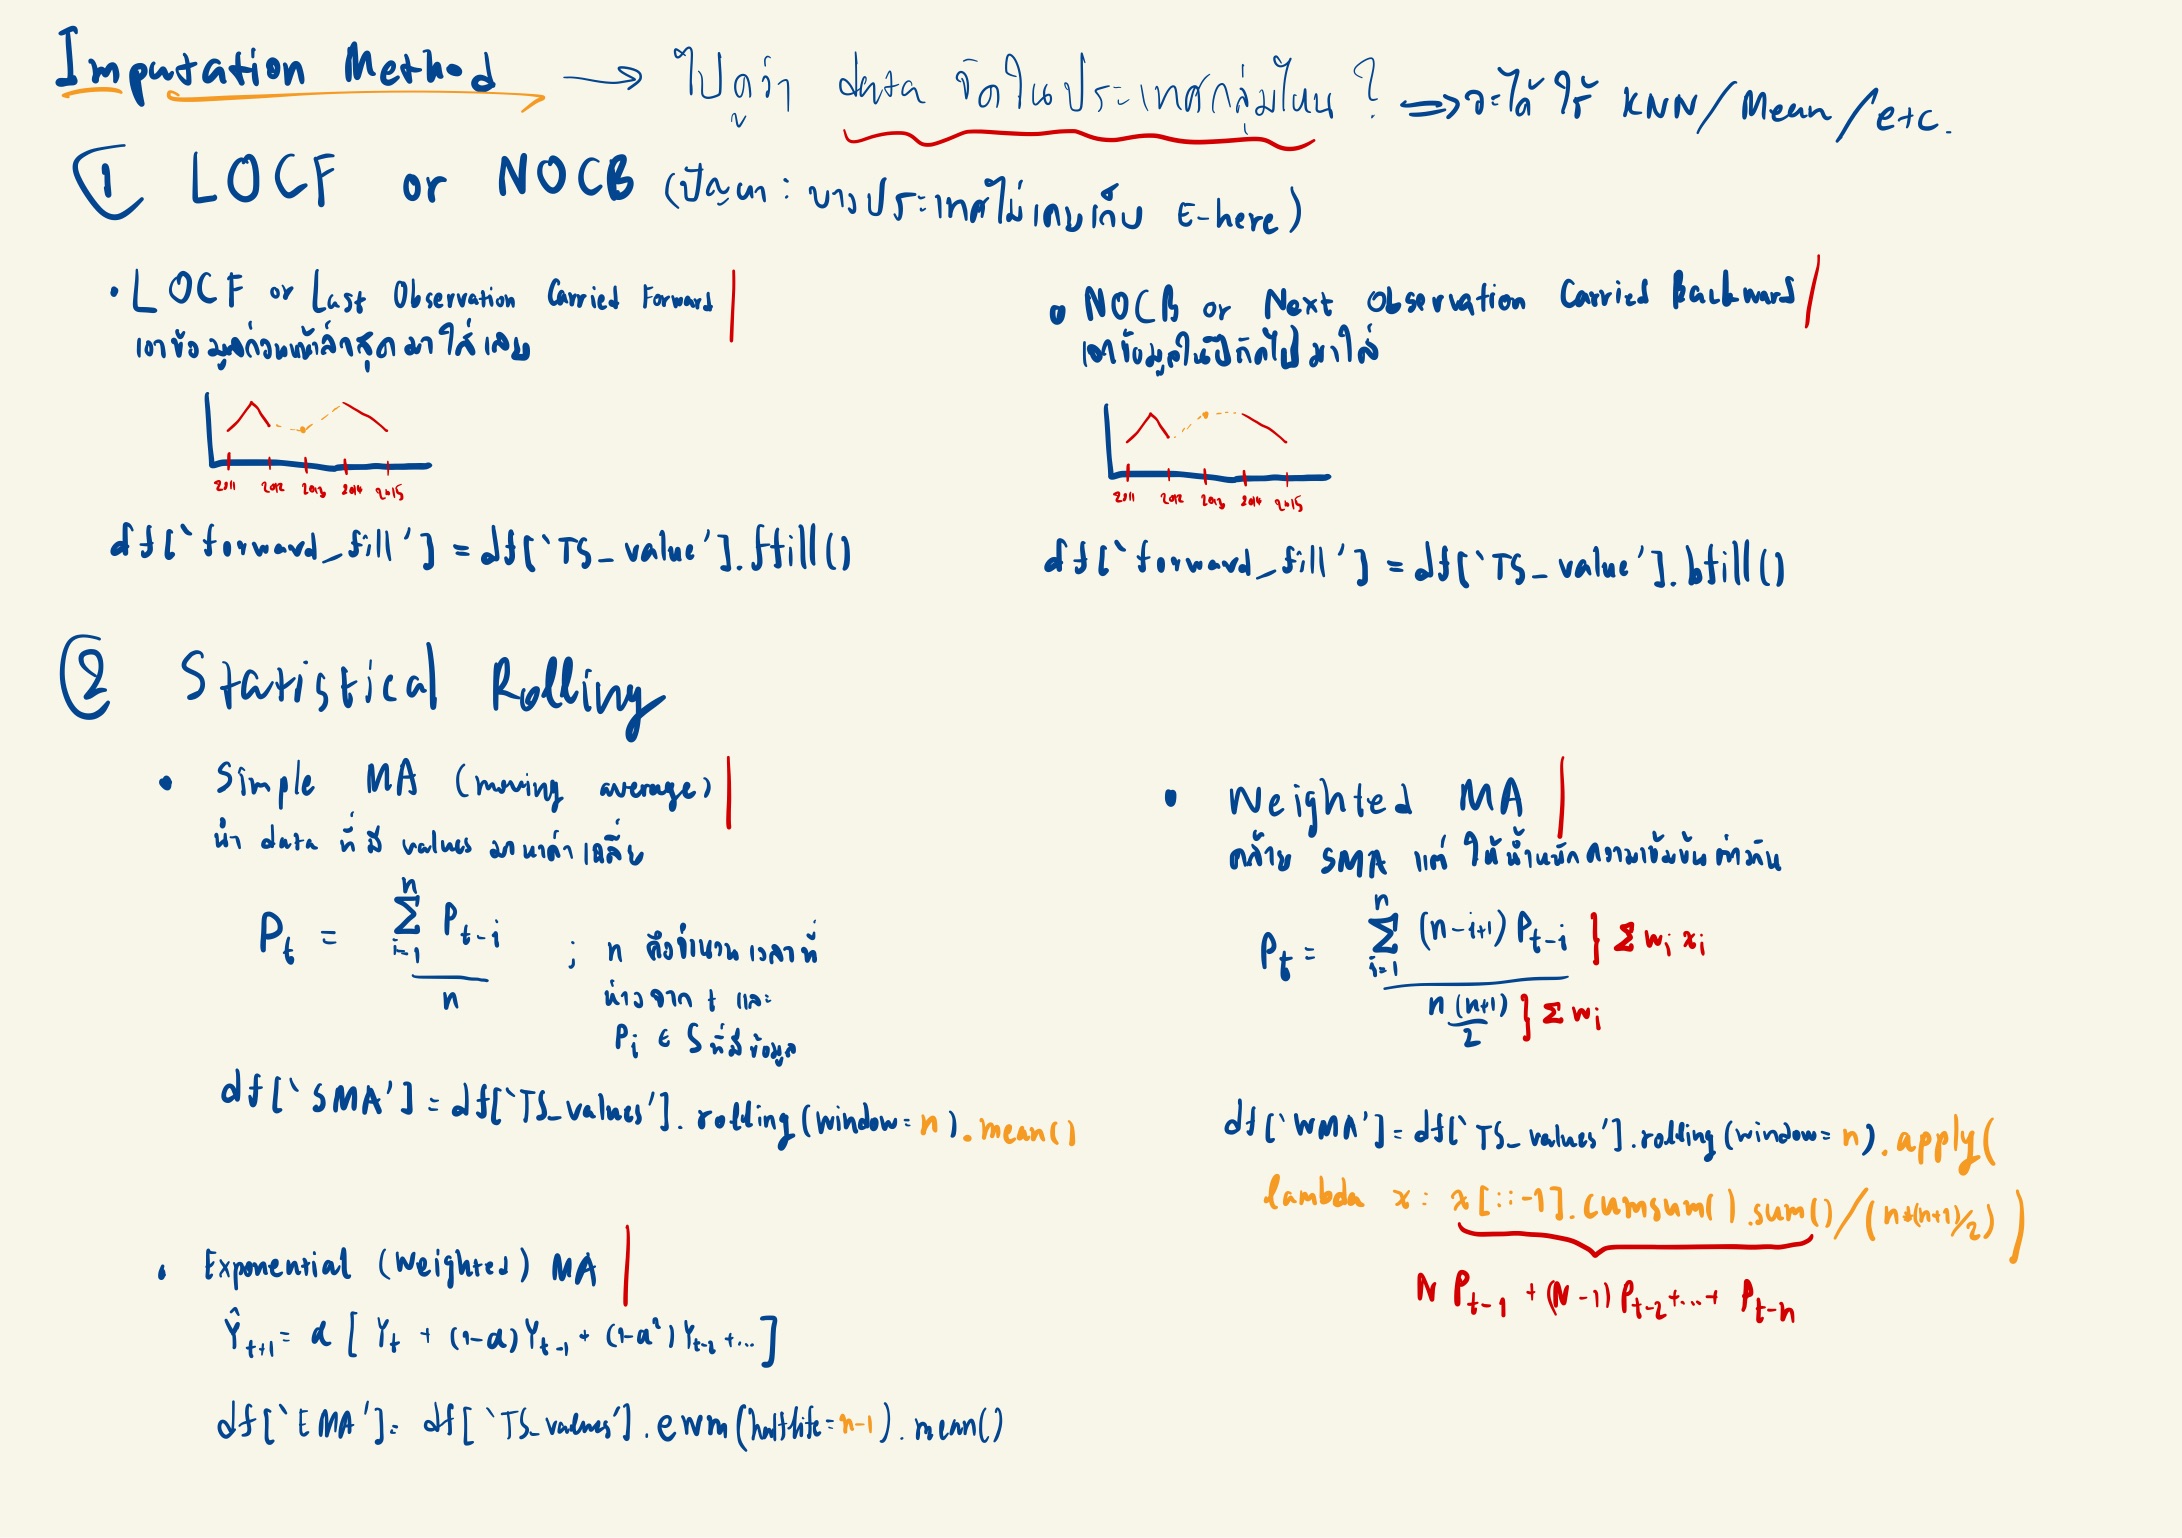 Imputation Method → ไปดูว่า data จัดในประเทศกลุ่มไหน? ⇒ จะได้ใช้ KNN/Mean/etc.
① LOCF or NOCB (ปัญหา : บางประเทศไม่เคยเก็บ E-here)
• LOCF or Last Observation Carried Forward
เอาข้อมูลก่อนหน้าล่าสุดมาใส่เลย
2011 2012 2013 2014 2015
df[‘forward_fill’] = df[‘TS_value’].ffill()
• NOCB or Next Observation Carried Backward
เอาข้อมูลในปีถัดไปมาใส่
2011 2012 2013 2014 2015
df[‘forward_fill’] = df[‘TS_value’].bfill()
② Statistical Rolling
• Simple MA (moving average)
นำ data ที่มี values มาหาค่าเฉลี่ย
P_t = Σ_{i=1}^{n} P_{t-i} / n ; n คือจำนวนเวลาที่
ห่างจาก t และ
P_i ∈ S ที่มีข้อมูล
df[‘SMA’] = df[‘TS_values’].rolling(window=n).mean()
• Weighted MA
คล้าย SMA แต่ ให้น้ำหนักความเข้มข้นต่างกัน
P_t = Σ_{i=1}^{n} (n-i+1) P_{t-i} } Σ w_i x_i
n(n+1)/2 } Σ w_i
df[‘WMA’] = df[‘TS_values’].rolling(window=n).apply(
lambda x: x[::-1].cumsum().sum()/(n*(n+1)/2))
N P_{t-1} + (N-1) P_{t-2} + ... + P_{t-n}
• Exponential (Weighted) MA
Ŷ_{t+1} = α [ Y_t + (1-α)Y_{t-1} + (1-α²)Y_{t-2} + ... ]
df[‘EMA’] = df[‘TS_values’].ewm(halflife=n-1).mean()